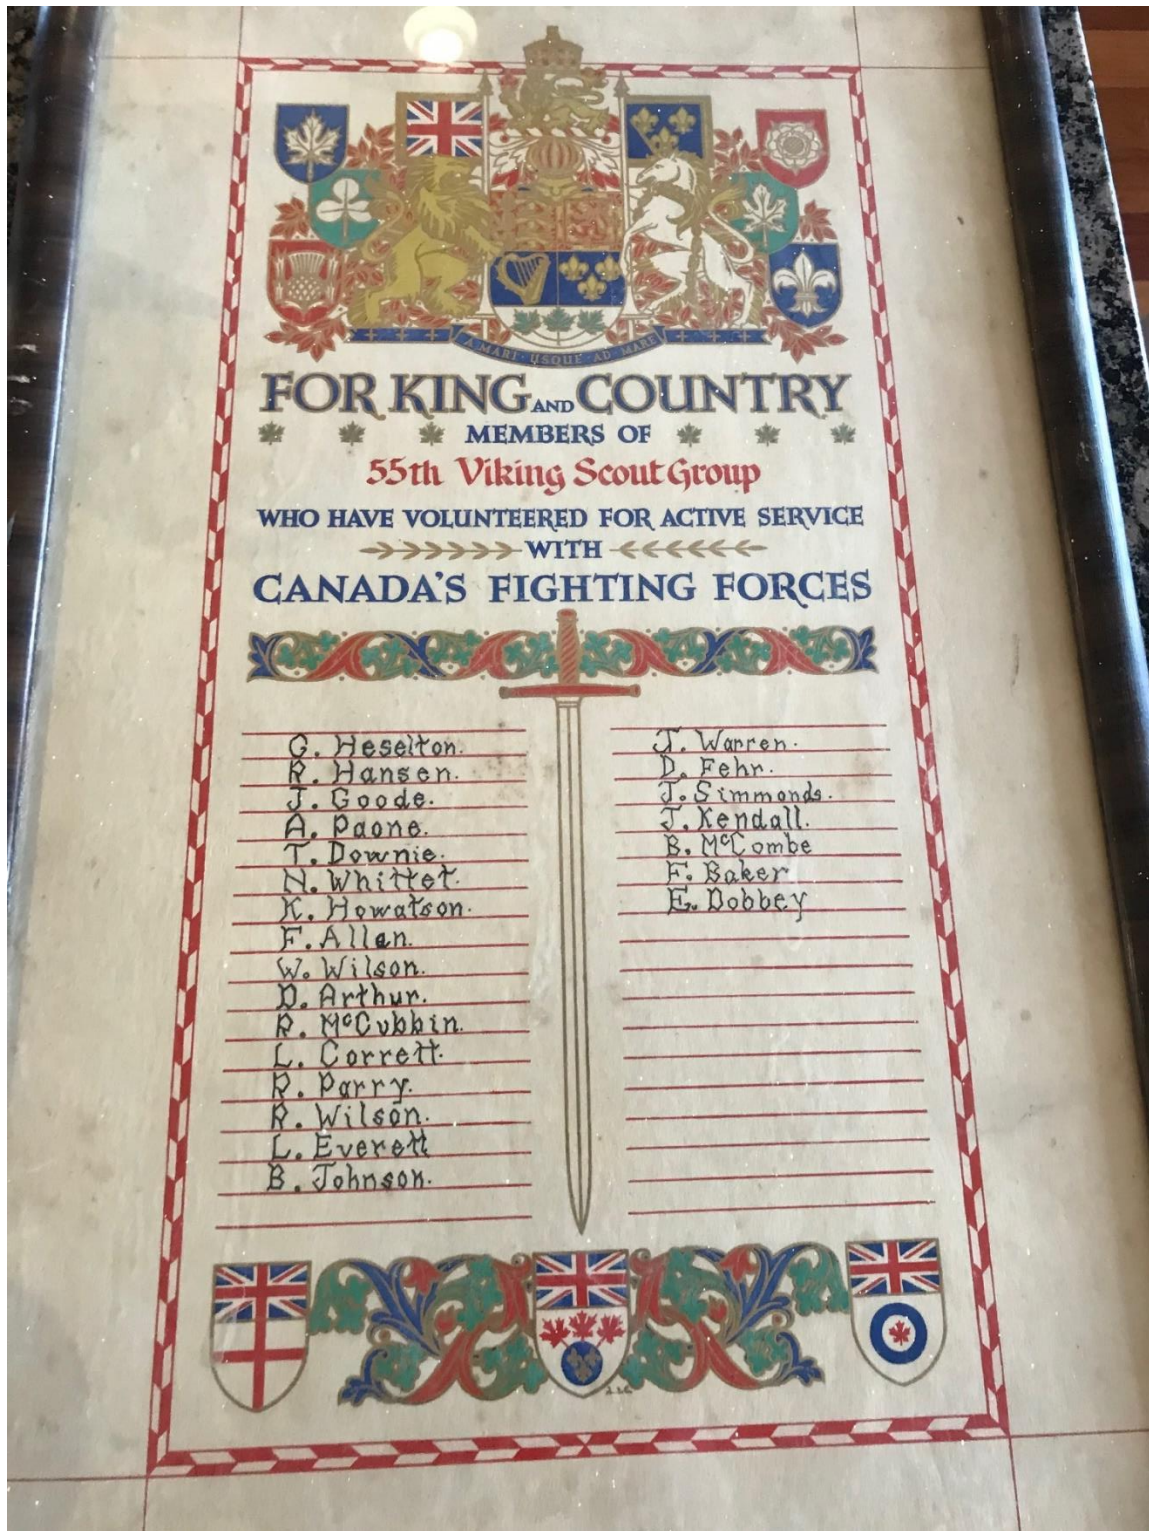 A MARI USQUE AD MARE
FOR KING AND COUNTRY
MEMBERS OF
55th Viking Scout Group
WHO HAVE VOLUNTEERED FOR ACTIVE SERVICE
WITH
CANADA'S FIGHTING FORCES
G. Heselton.
R. Hansen.
J. Goode.
A. Paone.
T. Downie.
N. Whittet.
K. Howatson.
F. Allan.
W. Wilson.
D. Arthur.
R. McCubbin.
L. Corrett.
R. Parry.
R. Wilson.
L. Everett
B. Johnson.
J. Warren.
D. Fehr.
J. Simmonds.
J. Kendall.
B. McCombe
F. Baker
E. Dobbey